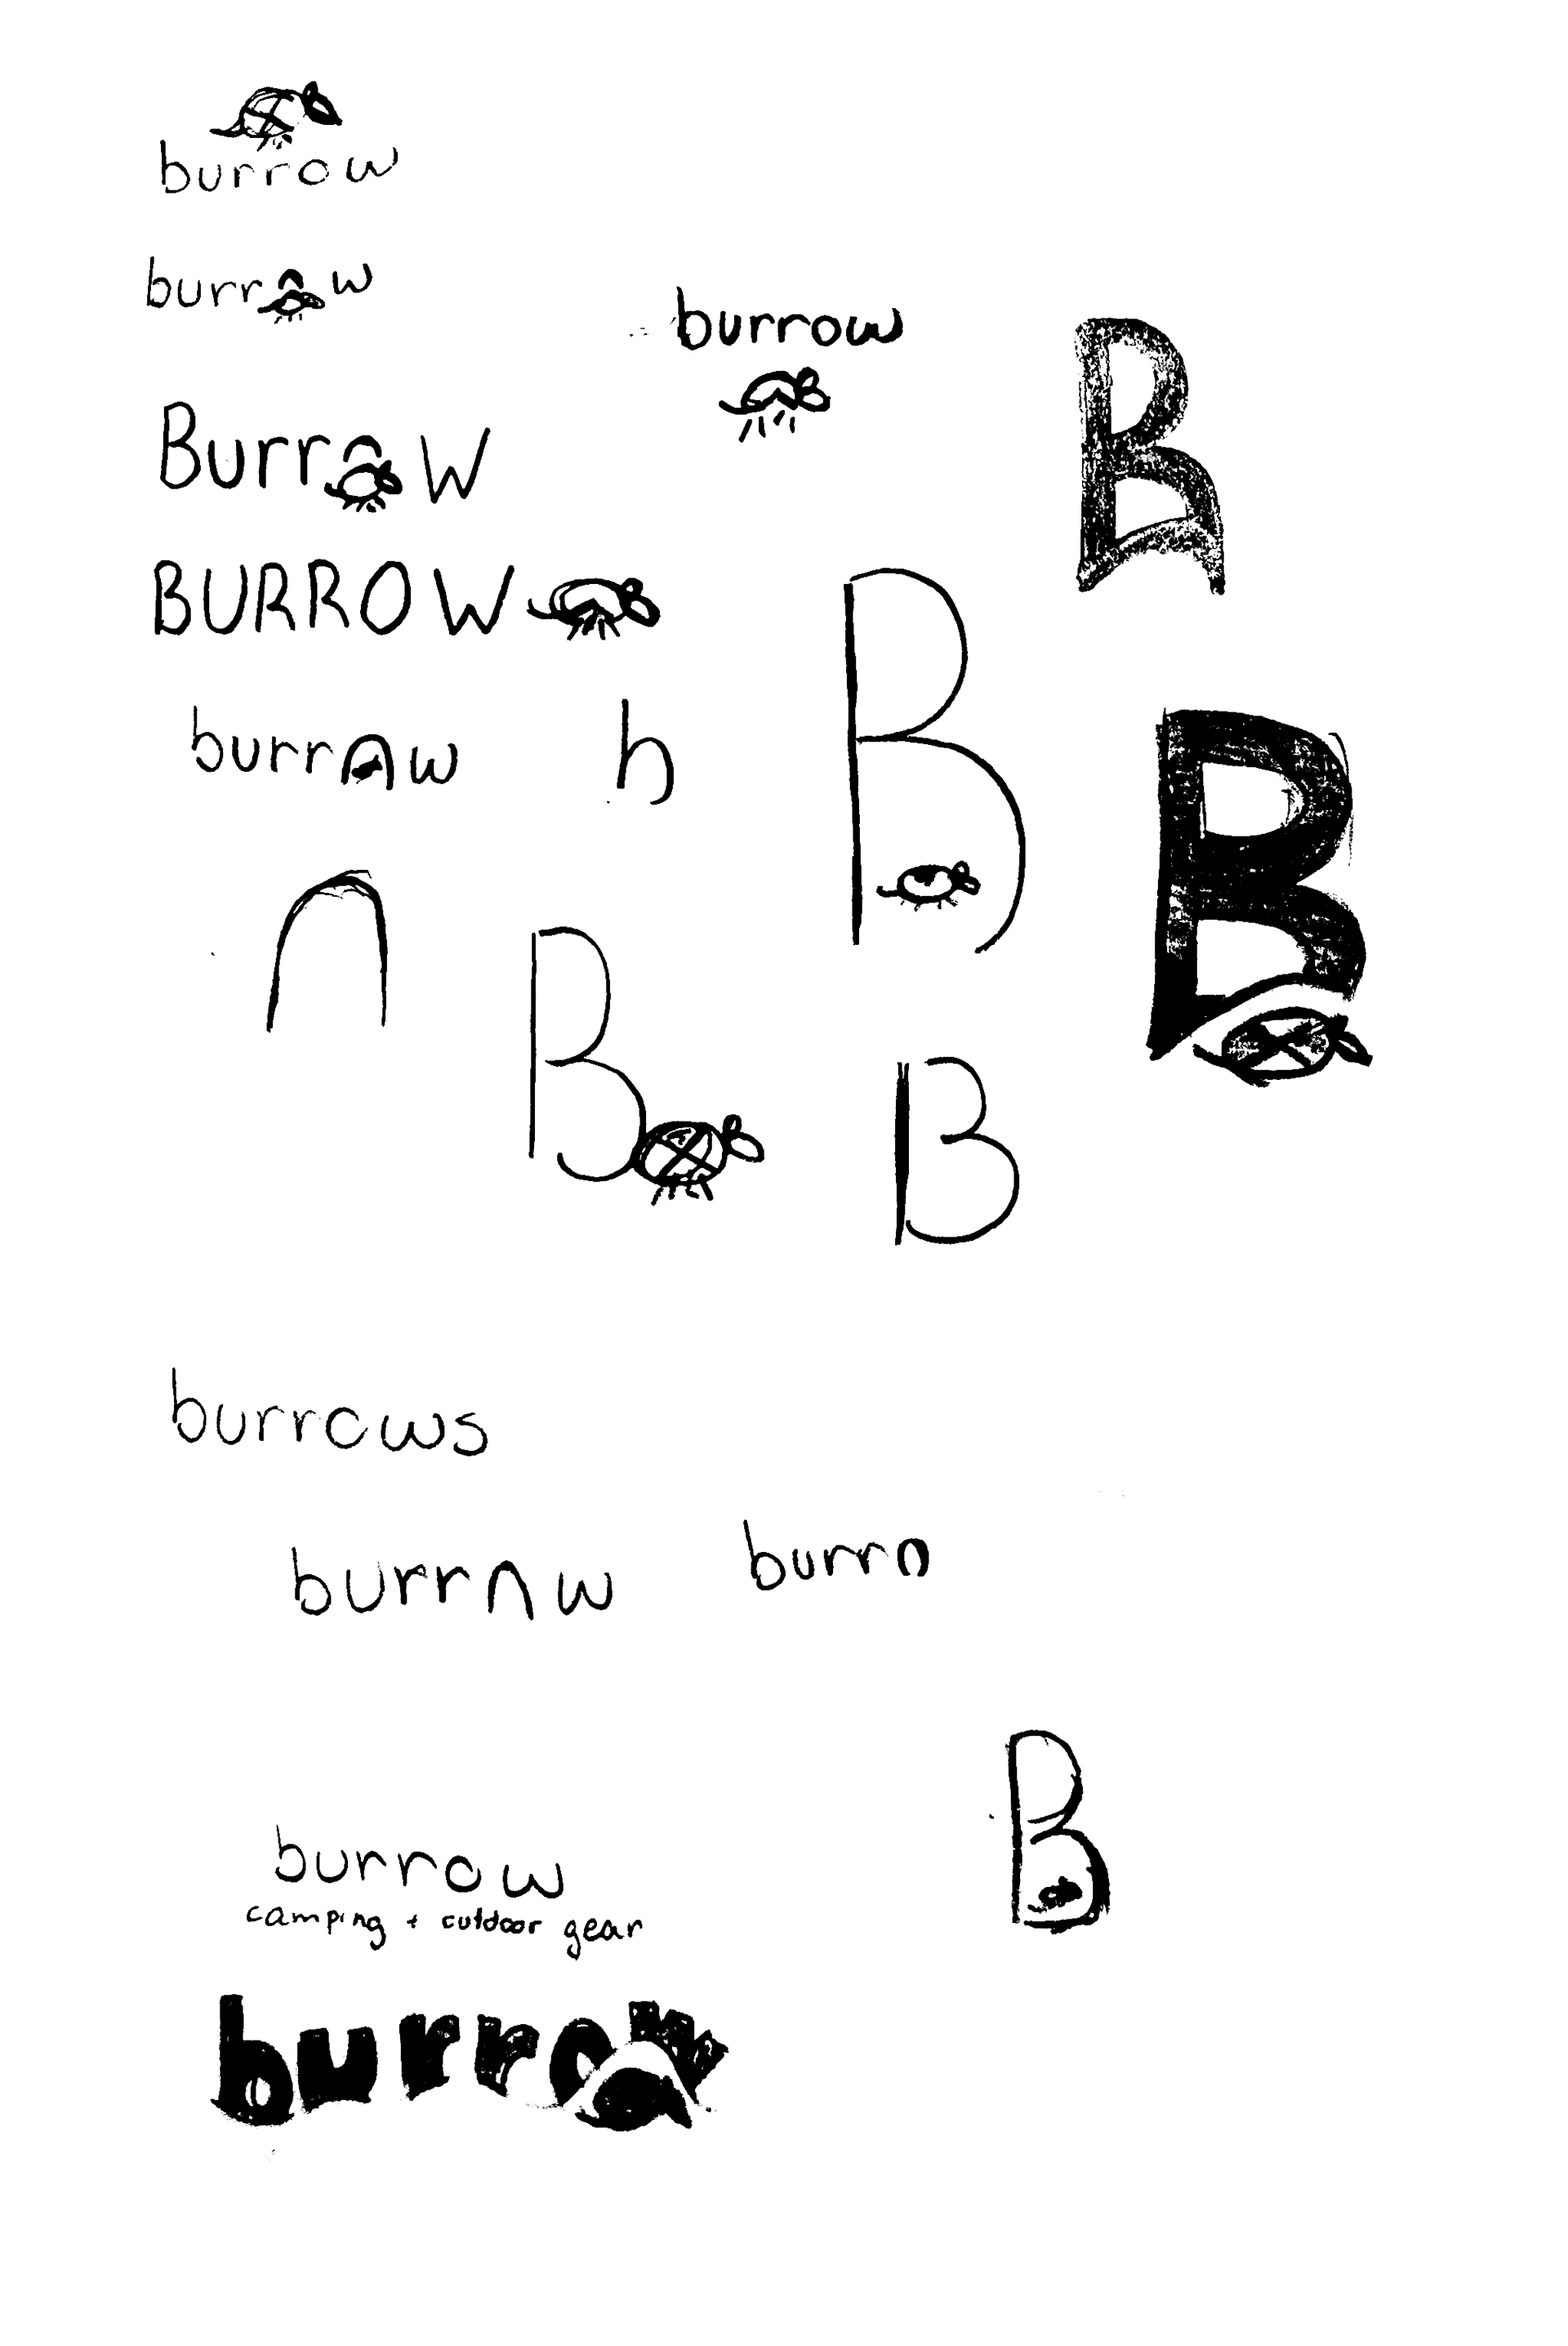 burrow
burr w
burrow
Burr w
BURROW
burrnw
h
B
B
B
n
B
B
burrows
burrnw
burrn
B
burrow
camping + outdoor gear
burrow